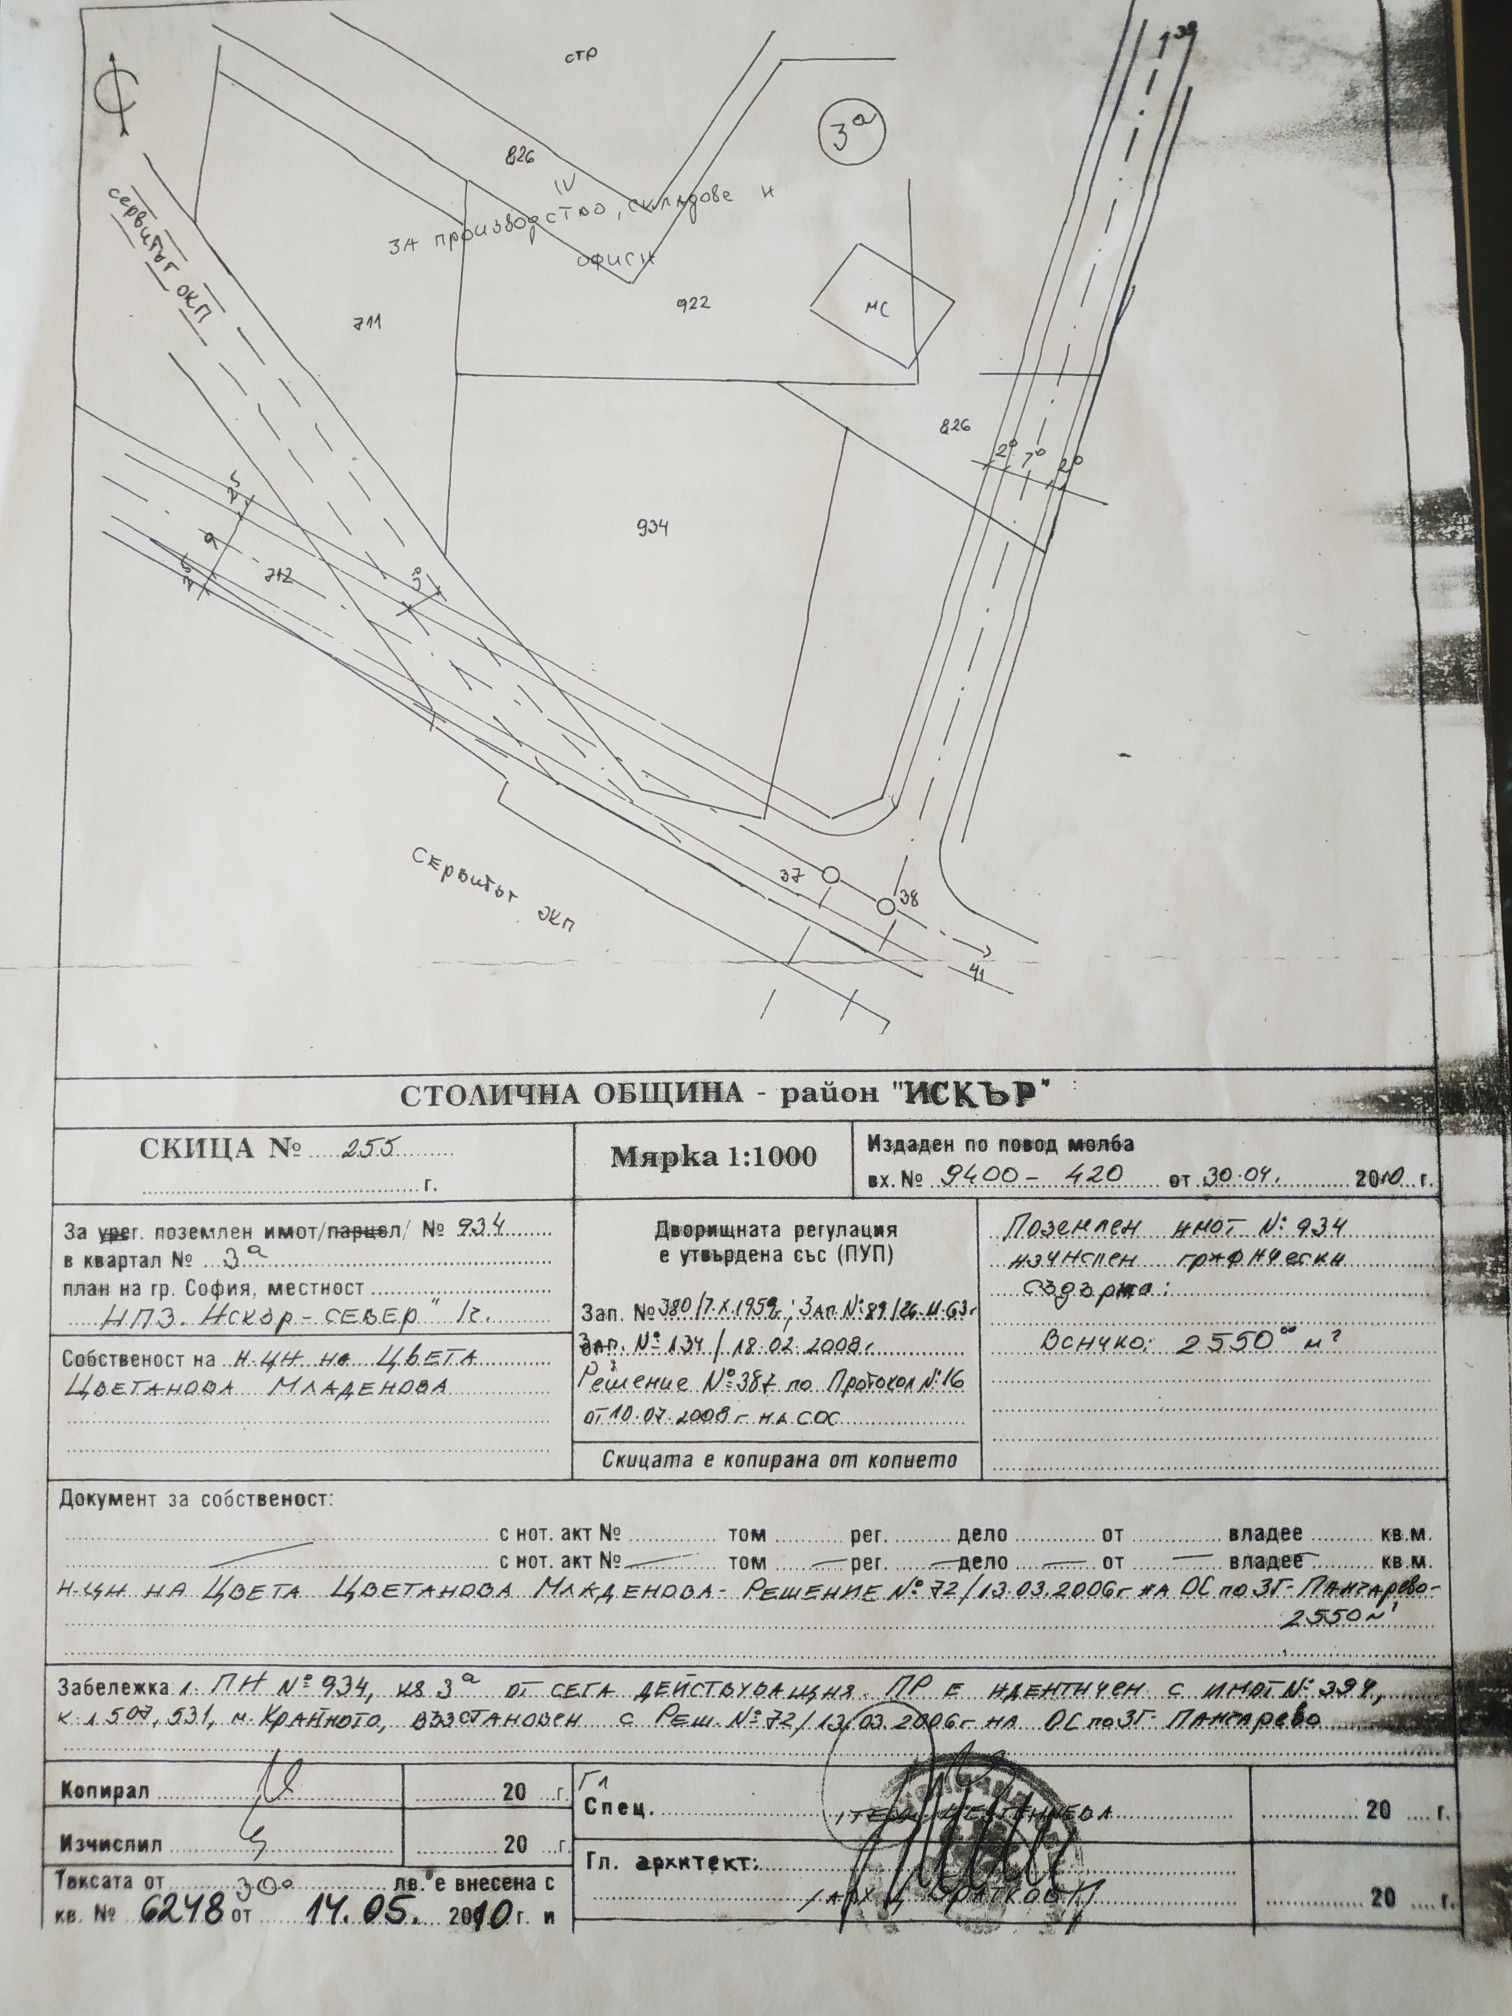 39
СТР
3а
826
IV
ЗА ПРОИЗВОДСТВО, СКЛАДОВЕ И
ОФИСИ
сервитут ЖКП
711
922
МС
826
2⁰ 7⁰ 2⁰
934
2⁵
9
2⁵
712
3⁰
37
38
41
Сервитут ЖКП
СТОЛИЧНА ОБЩИНА - район "ИСКЪР"
СКИЦА № 255
г.
Мярка 1:1000
Издаден по повод молба
вх. № 9400 - 420 от 30.04. 2010 г.
За урег. поземлен имот/парцел/ № 934
в квартал № 3а
план на гр. София, местност
НПЗ. Искър - СЕВЕР"
Собственост на Н-ЦИ НА ЦВЕТА
ЦВЕТАНОВА МЛАДЕНОВА
Дворищната регулация
е утвърдена със (ПУП)
Зап. № 380/7.X.1959г; ЗАП. №:89/26.II.63г
ЗАП. № 134/18.02.2008г.
Решение №387 по Протокол №16
от 10.07.2008г НА СОС
Скицата е копирана от копието
Поземлен имот №: 934
изчислен графически
съдържа:
Всичко: 2550⁰⁰ м²
Документ за собственост:
с нот. акт № том рег. дело от владее кв.м.
с нот. акт № том рег. дело от владее кв.м.
Н-ЦИ НА ЦВЕТА ЦВЕТАНОВА МЛАДЕНОВА - РЕШЕНИЕ №72/13.03.2006г НА ОС ПО ЗГ - ПАНЧАРЕВО -
2550 м²
Забележка 1. ПИ №934, кв 3а ОТ СЕГА ДЕЙСТВУВАЩИЯ ПР Е ИДЕНТИЧЕН С ИМОТ №: 394,
к.л 507, 531, м. Крайното, ВЪЗСТАНОВЕН С Реш. №72/13.03.2006г НА ОС по ЗГ- ПАНЧАРЕВО
Копирал 20 г.
Изчислил 20 г.
Таксата от 30⁰⁰ лв. е внесена с
кв. № 6248 от 14.05. 2010 г. и
Гл
Спец. 20 г.
Гл. архитект:
20 г.